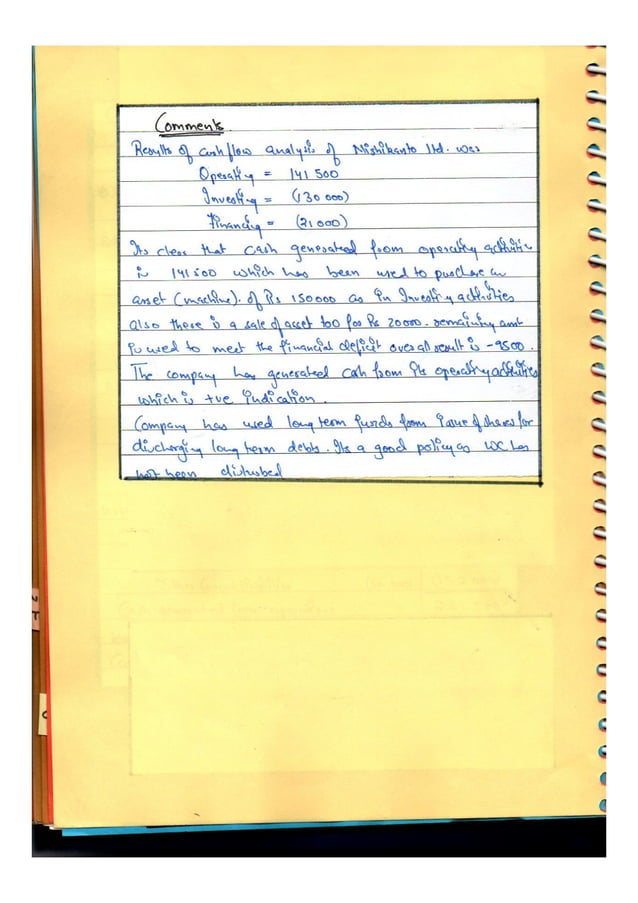 Comments
Results of cashflow analysis of Nishikanto ltd. was
Operating = 141 500
Investing = (130 000)
Financing = (21 000)
Its clear that cash generated from operating activities
is 141500 which has been used to purchase an
asset (machine). of Rs 150000 as in Investing activities
also there is a sale of asset too for Rs 20000. remaining amt
is used to meet the financial deficit overall result is -9500.
The company has generated cash from its operating activities
which is +ve indication.
Company has used long term funds from issue of shares for
discharging long term debts. Its a good policy as WC has
not been disturbed